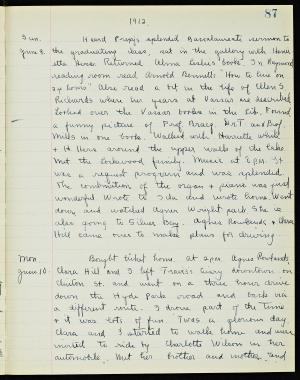 87
1912.
Sun. Heard Prexy's splendid Baccalaureate sermon to
June 9. the graduating class, sat in the gallery with
Returned Alma books. In
reading room read Arnold Bennett's "How to live on
24 hours" Also read a bit in the life of Ellen S.
Richards where her years at Vassar are described
Looked over the Vassar books in the Lib. Found
a funny picture of Prof. and Prof.
Mills in one book. Walked with Harriette White
+ H around the upper walls of the lake.
Met the Lockwood family. Music at 8 P.M. It
was a request program and was splendid.
The combination of the organ + piano was just
wonderful. Wrote to Ida and wrote home. Went
down and watched Agnes Wright pack. She is
also going to Silver Bay. Agnes Rowlands + Clara
Hill came over to make plans for driving.
Mon. Bought ticket home. At 2 P.M. Agnes Rowlands,
June 10. Clara Hill and I left Travis' Livery downtown on
Clinton St. and went on a three hour drive
down the Hyde Park road and back via
a different route. I drove part of the time
+ it was lots of fun. Twas a glorious day
Clara and I started to walk home and were
invited to ride by Charlotte Wilson in her
automobile. Met her brother and mother, and